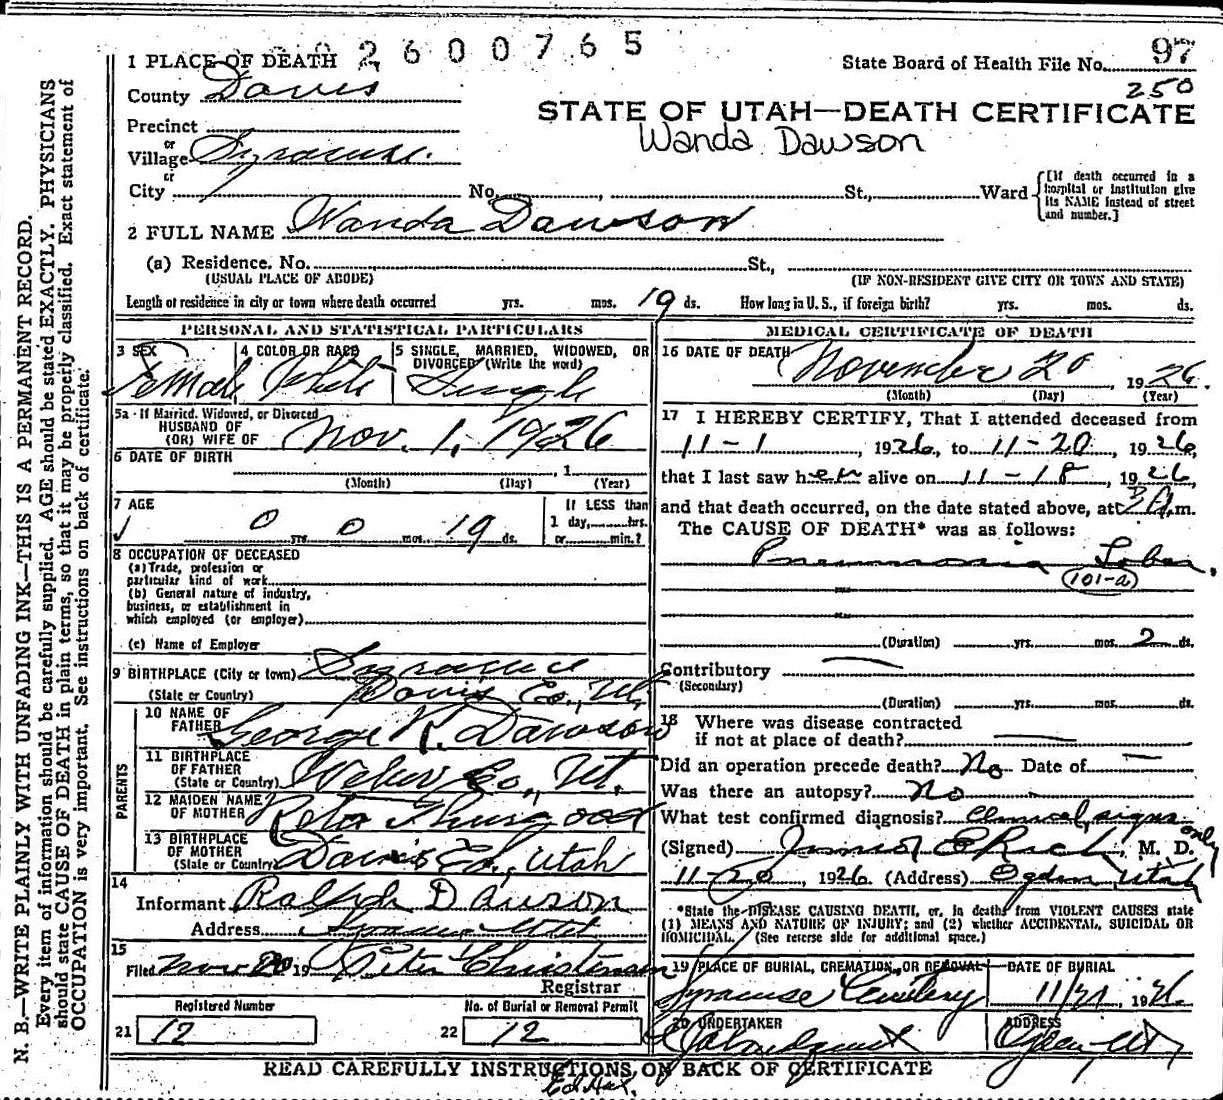 2600765
1 PLACE OF DEATH
State Board of Health File No. 97
250
County Davis
STATE OF UTAH—DEATH CERTIFICATE
Wanda Dawson
Precinct
or
Village Syracuse.
or
City No. St., Ward
[If death occurred in a
hospital or institution give
its NAME instead of street
and number.]
2 FULL NAME Wanda Dawson
(a) Residence. No. St.,
(USUAL PLACE OF ABODE) (IF NON-RESIDENT GIVE CITY OR TOWN AND STATE)
Length of residence in city or town where death occurred yrs. mos. 19 ds. How long in U.S., if foreign birth? yrs. mos. ds.
PERSONAL AND STATISTICAL PARTICULARS
3 SEX 4 COLOR OR RACE 5 SINGLE, MARRIED, WIDOWED, OR
DIVORCED (Write the word)
Female White Single
5a - If Married, Widowed, or Divorced
HUSBAND OF
(OR) WIFE OF
Nov. 1, 1926
6 DATE OF BIRTH , 1
(Month) (Day) (Year)
7 AGE If LESS than
0 yrs 0 mos. 19 ds. 1 day, hrs.
or min.?
8 OCCUPATION OF DECEASED
(a) Trade, profession or
particular kind of work
(b) General nature of industry,
business, or establishment in
which employed (or employer)
(c) Name of Employer
9 BIRTHPLACE (City or town) Syracuse
(State or Country) Davis Co., Ut.
PARENTS
10 NAME OF
FATHER George R. Dawson
11 BIRTHPLACE
OF FATHER
(State or Country) Weber Co., Ut.
12 MAIDEN NAME
OF MOTHER Reta Thurgood
13 BIRTHPLACE
OF MOTHER
(State or Country) Davis Co., Utah
14
Informant Ralph Dawson
Address Syracuse Utah
15
Filed Nov 20 19 Peter Christensen
Registrar
Registered Number No. of Burial or Removal Permit
21 12 22 12
MEDICAL CERTIFICATE OF DEATH
16 DATE OF DEATH
November 20, 1926.
(Month) (Day) (Year)
17 I HEREBY CERTIFY, That I attended deceased from
11-1, 1926, to 11-20, 1926,
that I last saw her alive on 11-18, 1926,
and that death occurred, on the date stated above, at A.m.
The CAUSE OF DEATH* was as follows:
Pneumonia Lobar.
101-a
(Duration) yrs. mos. 2 ds.
Contributory
(Secondary)
(Duration) yrs. mos. ds.
18 Where was disease contracted
if not at place of death?
Did an operation precede death? No Date of
Was there an autopsy? No
What test confirmed diagnosis? Clinical signs only
(Signed) Junior E Rich, M. D.
11-20, 1926 (Address) Ogden, Utah
*State the DISEASE CAUSING DEATH, or, in deaths from VIOLENT CAUSES state
(1) MEANS AND NATURE OF INJURY; and (2) whether ACCIDENTAL, SUICIDAL OR
HOMICIDAL. (See reverse side for additional space.)
19 PLACE OF BURIAL, CREMATION, OR REMOVAL DATE OF BURIAL
Syracuse Cemetery 11/21, 1926
20 UNDERTAKER ADDRESS
Lindquist Ogden, Ut
READ CAREFULLY INSTRUCTIONS ON BACK OF CERTIFICATE
N. B.—WRITE PLAINLY WITH UNFADING INK—THIS IS A PERMANENT RECORD.
Every item of information should be carefully supplied. AGE should be stated EXACTLY. PHYSICIANS
should state CAUSE OF DEATH in plain terms, so that it may be properly classified. Exact statement of
OCCUPATION is very important. See instructions on back of certificate.